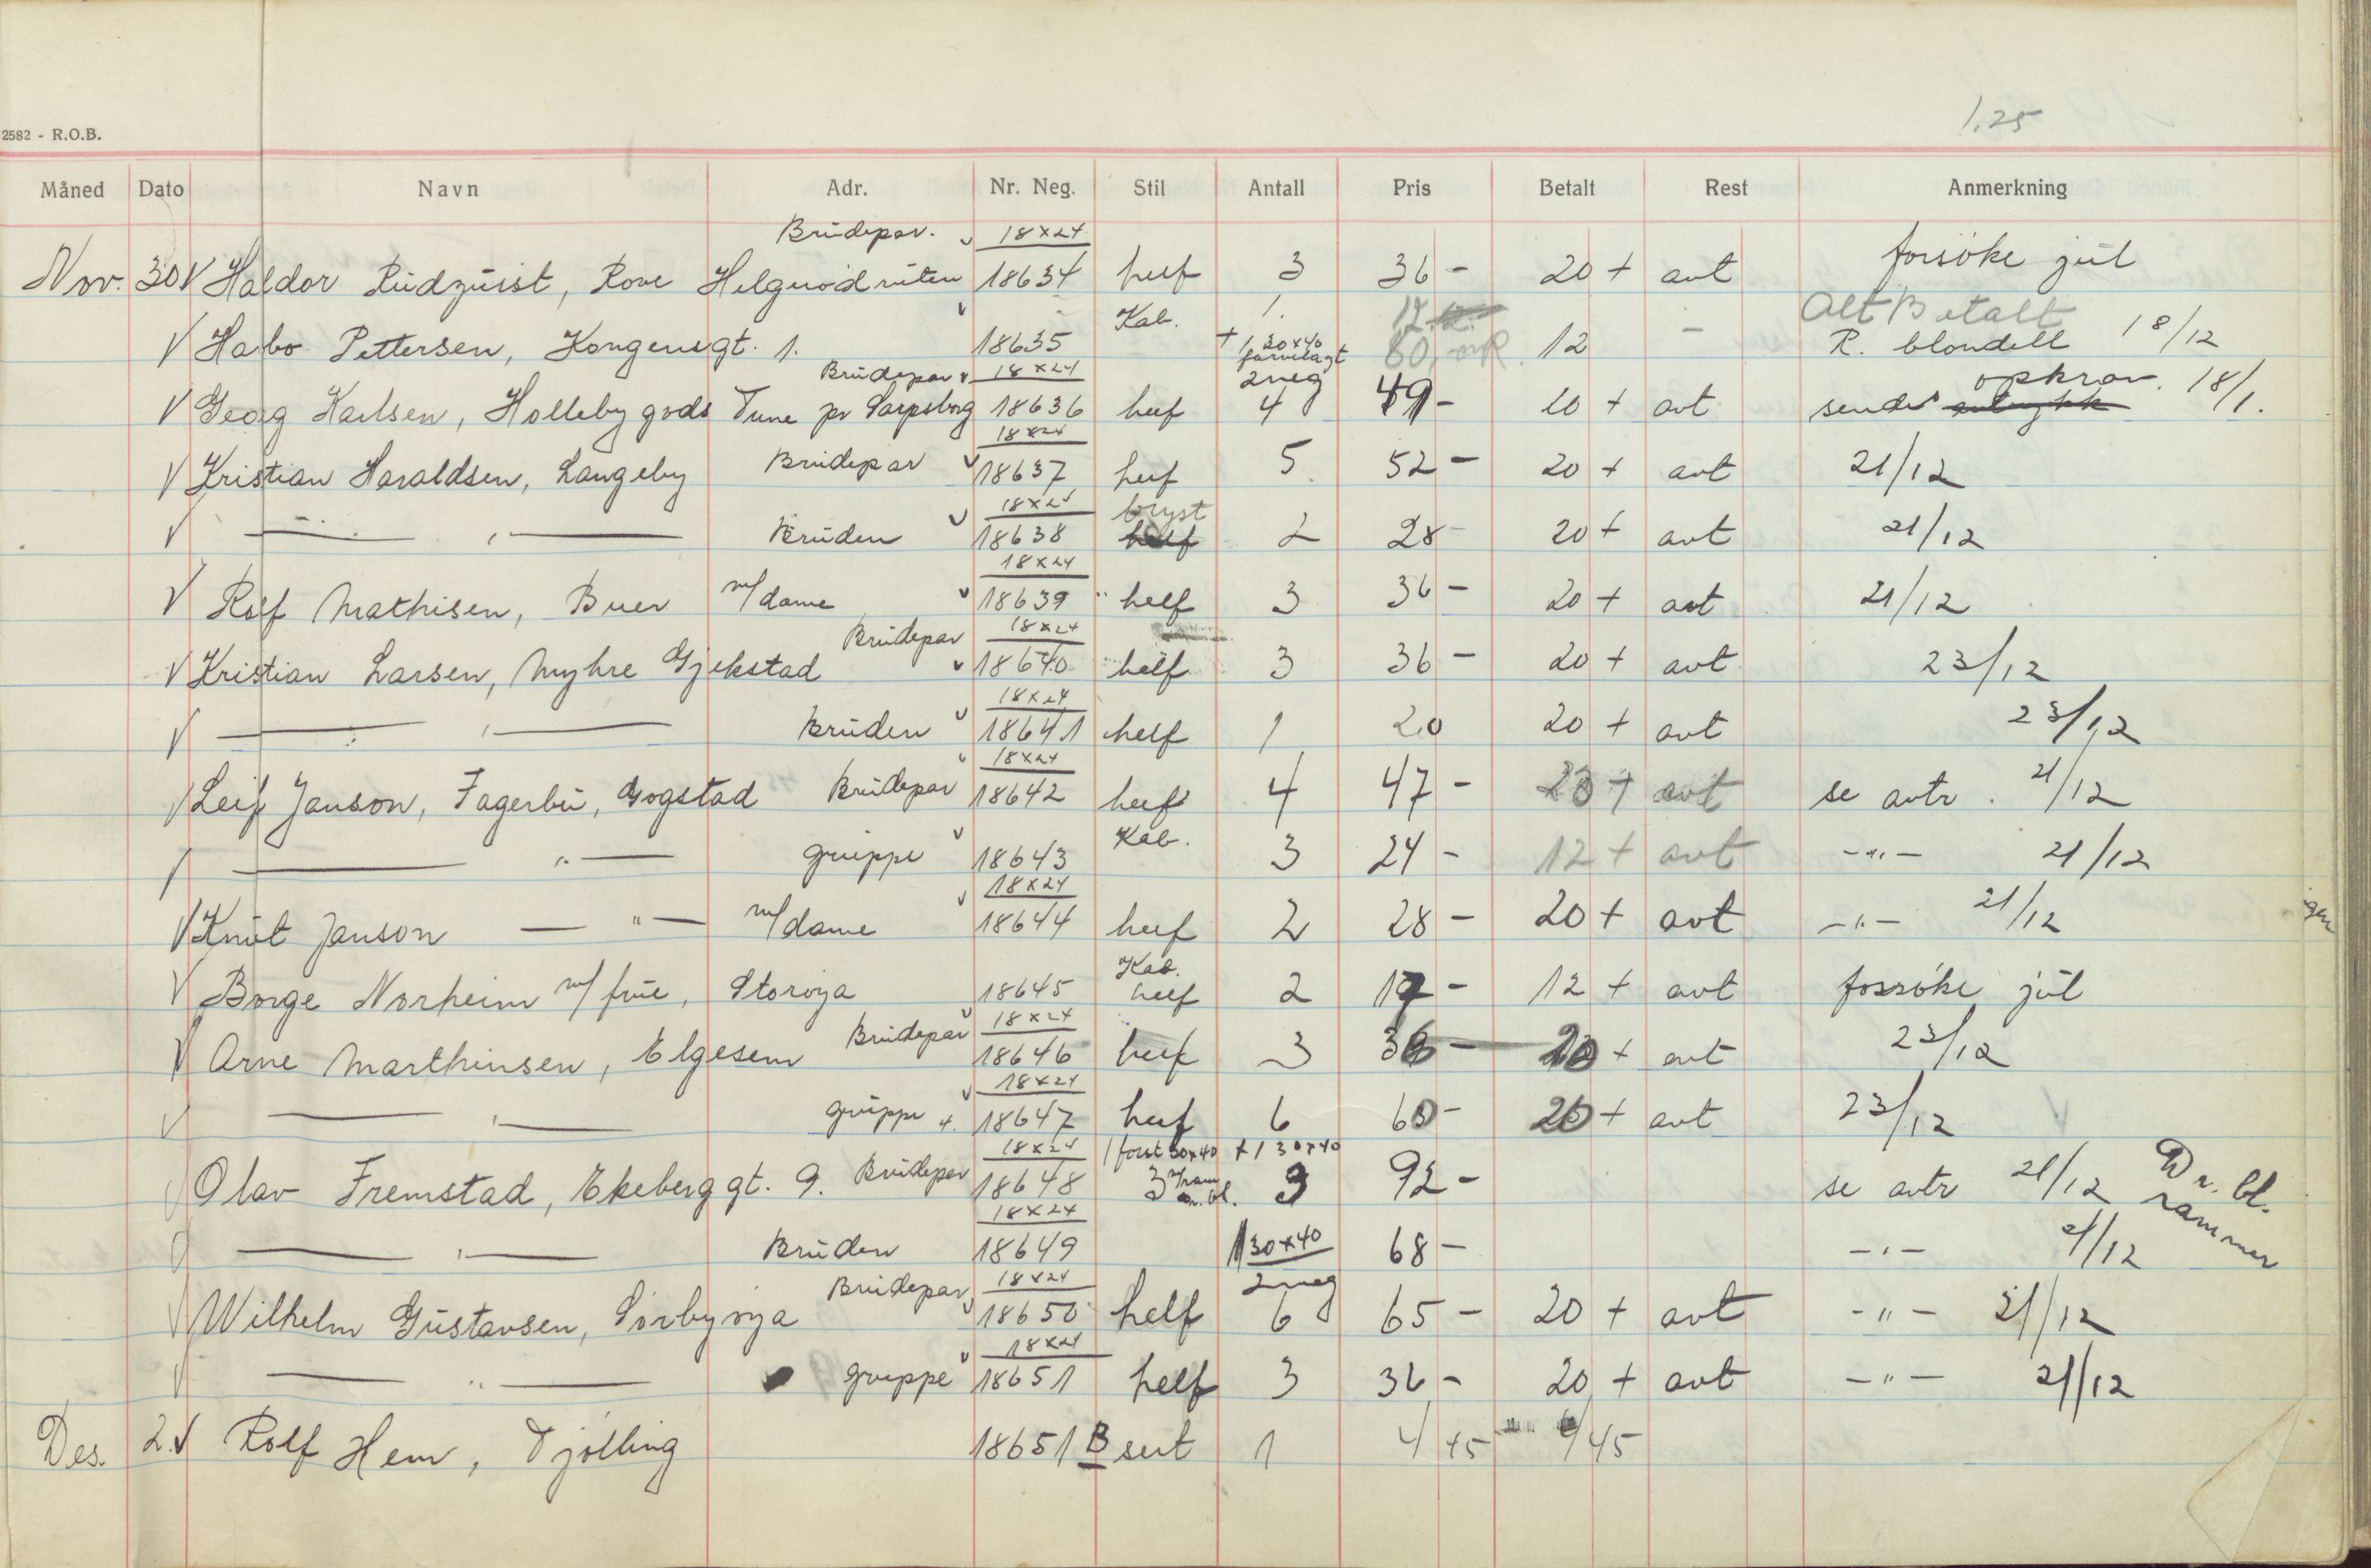 1.25
2582 - R.O.B.
Måned Dato Navn Adr. Nr. Neg. Stil Antall Pris Betalt Rest Anmerkning
Brudepar. 18x24
Nov. 30 V Haldor Rudquist, Rove 18634 helf 3 36 - 20 + avt forsöke jul
Kab. 1. Alt Betalt
V Pettersen, Kongensgt. 1. 18635 + 1 30x40 12 - R. blondell 18/12
Brudepar 18x24 2 neg opkrav. 18/1.
V Georg Karlsen, Holleby gods Tune pr Sarpsborg 18636 helf 4 49 - 20 + avt sendes
18x24
V Kristian Haraldsen, Langeby Brudepar 18637 helf 5 52 - 20 + avt 21/12
18x24 bryst
V — " — Bruden 18638 helf 2 28 - 20 + avt 21/12
18x24
V Rolf Mathisen, Buer m/dame 18639 helf 3 36 - 20 + avt 21/12
Brudepar 18x24
V Kristian Larsen, Myhre Gjekstad 18640 helf 3 36 - 20 + avt 23/12
18x24
V — " — Bruden 18641 helf 1 20 20 + avt 23/12
18x24
V Leif Janson, Fagerbu, Gogstad Brudepar 18642 helf 4 47 - 20 + avt se avtr. 21/12
Kab.
V — " — gruppe 18643 3 24 - 12 + avt - " - 21/12
18x24
V Knut Janson — " — m/dame 18644 helf 2 28 - 20 + avt - " - 21/12
Kab.
V Borge Norheim m/frue, Storøya 18645 helf 2 17 - 12 + avt forsöke jul
Brudepar 18x24
V Arne Marthinsen, Elgesem 18646 helf 3 36 - 20 + avt 23/12
18x24
V — " — gruppe 18647 helf 6 60 - 20 + avt 23/12
18x24 1 forst 30x40 + 1 30x40
V Olav Fremstad, Ekeberggt. 9. Brudepar 18648 3 3 92 - se avtr 21/12 Dr. bl. rammer
18x24
— " — Bruden 18649 1 30x40 68 - - " - 21/12
Brudepar 18x24 2 neg
V Wilhelm Gustavsen, Sörbyøya 18650 helf 6 65 - 20 + avt - " - 21/12
18x24
V — " — gruppe 18651 helf 3 36 - 20 + avt - " - 21/12
Des. 2. V Rolf Hem, Tjølling 18651 B sert 1 4 45 4 45